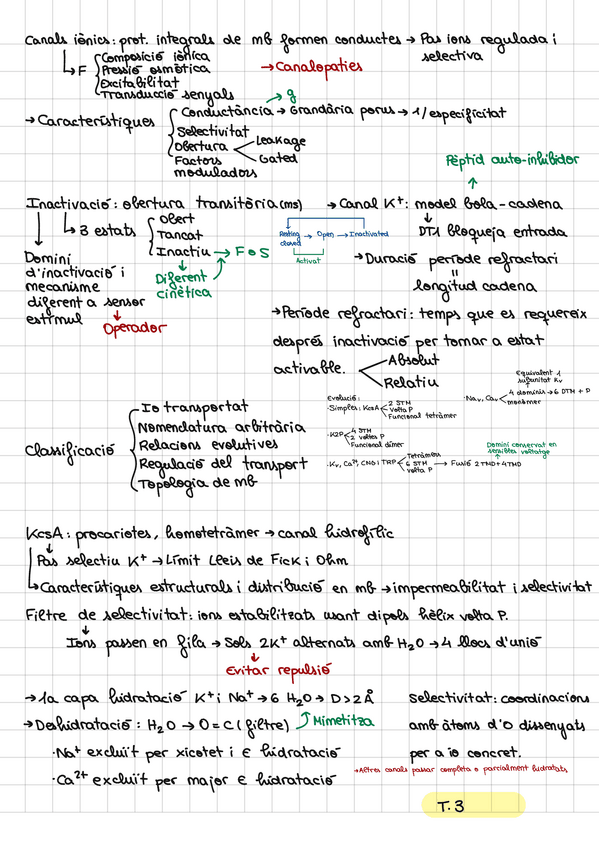 Canals iònics: prot. integrals de mb formen conductes → Pas ions regulada i
selectiva
↳F
Composició iònica
Pressió osmòtica
Excitabilitat
Transducció senyals
→Canalopaties
→ g
→ Característiques
Conductància → Grandària porus → 1/especificitat
Selectivitat
Obertura
Leakage
Gated
Factors
moduladors
Pèptid auto-inhibidor
Inactivació: obertura transitòria (ms)
→ Canal K+: model bola-cadena
↳ 3 estats
Obert
Tancat
Inactiu → F o S
Resting → Open → Inactivated
closed
Activat
DT1 bloqueja entrada
Domini
d'inactivació i
mecanisme
diferent a sensor
estímul
Operador
Diferent
cinètica
→Duració període refractari
=
longitud cadena
→Període refractari: temps que es requereix
després inactivació per tornar a estat
activable.
Absolut
Relatiu
Classificació
Io transportat
Nomenclatura arbitrària
Relacions evolutives
Regulació del transport
Topologia de mb
Evolució:
·Simples: KcsA
2 STM
volta P
Funcional tetràmer
·K2P
4 STM
2 voltes P
Funcional dímer
·Kv, Ca2+, CNG i TRP
Tetràmers
6 STM
volta P
→ Fusió 2TMD+4TMD
Equivalent 1
subunitat Kv
·Nav, Cav
4 dominis→6 DTM + P
monòmer
Domini conservat en
sensibles voltatge
KcsA: procariotes, homotetràmer → canal hidrofílic
Pas selectiu K+ → Límit Lleis de Fick i Ohm
↳Característiques estructurals i distribució en mb → impermeabilitat i selectivitat
Filtre de selectivitat: ions estabilitzats usant dipols hèlix volta P.
Ions passen en fila → Sols 2K+ alternats amb H2O → 4 llocs d'unió
Evitar repulsió
→ 1a capa hidratació K+ i Na+ → 6 H2O → D>2Å
→ Deshidratació: H2O → O=C (filtre) Mimetitza
·Na+ excluït per xicotet i E hidratació
·Ca2+ excluït per major E hidratació
Selectivitat: coordinacions
amb àtoms d'O dissenyats
per a io concret.
→Altres canals passar completa o parcialment hidratats
T.3